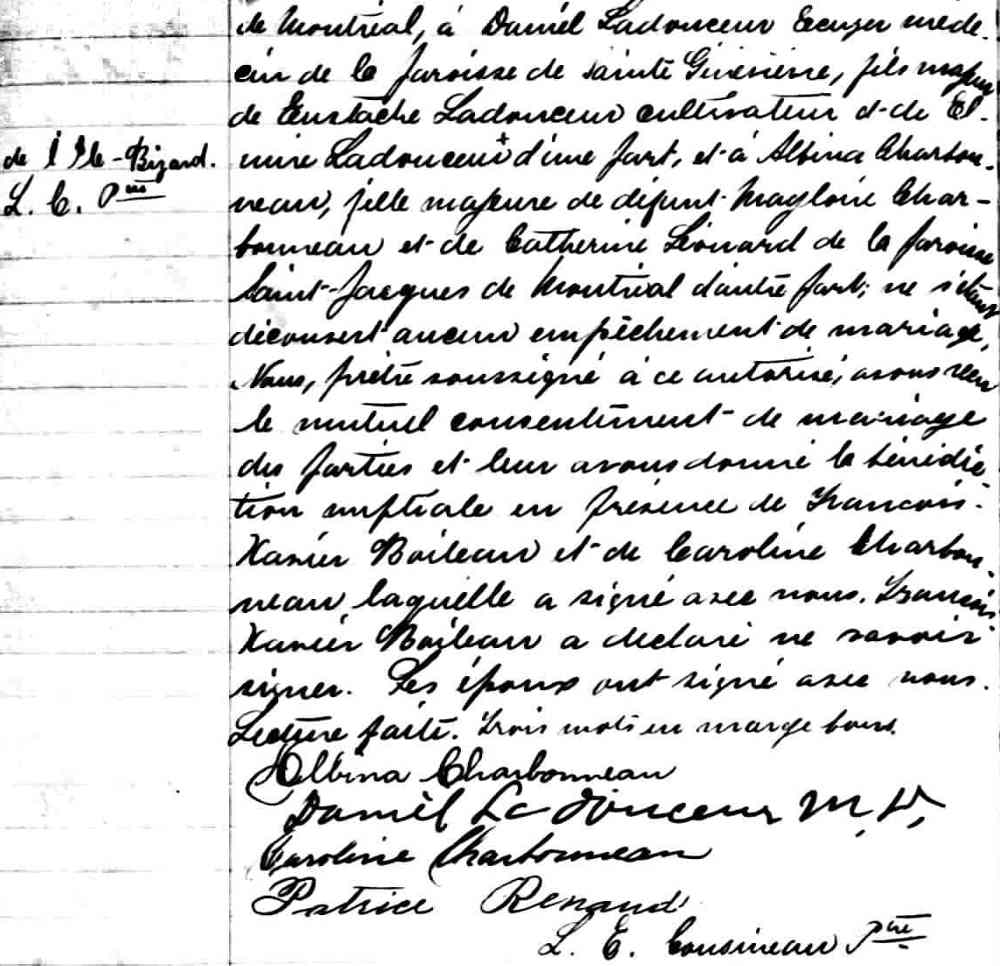 de Montréal, à Daniel Ladouceur Ecuyer méde-
cin de la paroisse de Sainte Geneviève, fils majeur
de Eustache Ladouceur cultivateur et de El-
mire Ladouceur + d'une part, et à Albina Charbon-
neau, fille majeure de défunt Magloire Char-
bonneau et de Catherine Léonard de la paroisse
Saint-Jacques de Montréal d'autre part; ne s'étant
découvert aucun empêchement de mariage,
Nous, prêtre soussigné à ce autorisé, avons reçu
le mutuel consentement de mariage
des parties et leur avons donné la bénédic-
tion nuptiale en présence de Francois-
Xavier Boileau et de Caroline Charbon-
neau, laquelle a signé avec nous. Francois-
Xavier Boileau a déclaré ne savoir
signer. Les époux ont signé avec nous.
Lecture faite. Trois mots en marge bons.
de l'Ile-Bizard.
L. C. Ptre
Albina Charbonneau
Daniel Ladouceur M.D,
Caroline Charbonneau
Patrice Renaud
L. E. Cousineau Ptre